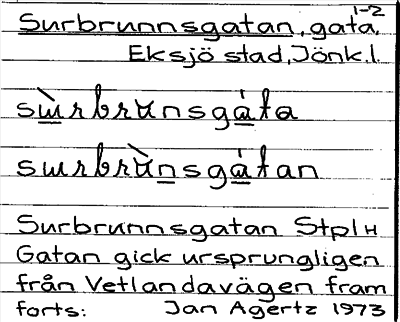 1-2
Surbrunnsgatan, gata,
Eksjö stad, Jönk.l.
sùrbrunsgáta
surbrùnsgátan
Surbrunnsgatan Stpl H
Gatan gick ursprungligen
från Vetlandavägen fram
forts: Jan Agertz 1973